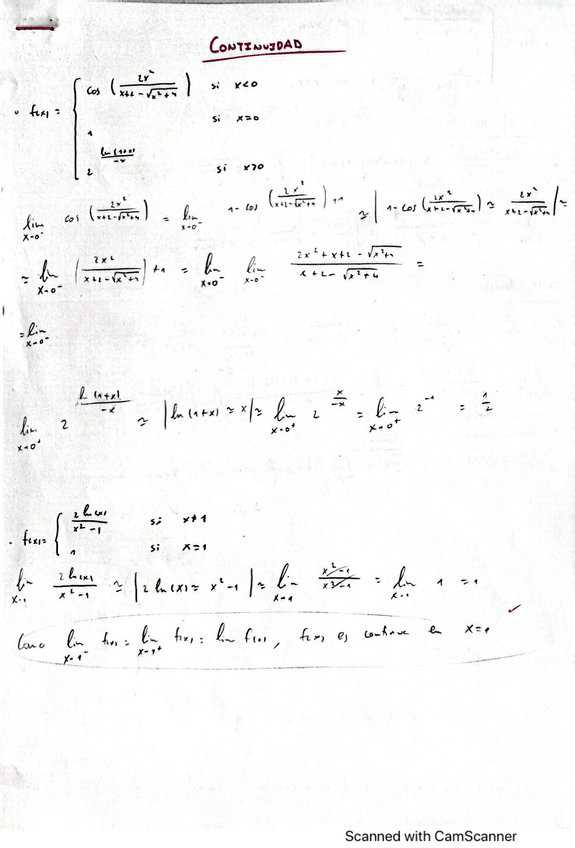 CONTINUIDAD
cos (2x²/(x+2-√(x²+4))) si x<0
· f(x) = { 1 si x=0
2^(ln(1+x)/-x) si x>0
lim x→0⁻ cos (2x²/(x+2-√(x²+4))) = lim x→0⁻ 1-cos (2x²/(x+2-√(x²+4))) +1 ≈ | 1-cos (2x²/(x+2-√(x²+4))) ≈ 2x²/(x+2-√(x²+4)) | ≈
≈ lim x→0⁻ (2x²/(x+2-√(x²+4))) +1 = lim x→0⁻ lim x→0⁻ (2x²+x+2-√(x²+4))/(x+2-√(x²+4)) =
= lim x→0⁻
lim x→0⁺ 2^(ln(1+x)/-x) ≈ | ln(1+x) ≈ x | ≈ lim x→0⁺ 2^(x/-x) = lim x→0⁺ 2⁻¹ = 1/2
· f(x) = { 2 ln(x)/(x²-1) si x≠1
1 si x=1
lim x→1 2 ln(x)/(x²-1) ≈ | 2 ln(x) ≈ x²-1 | ≈ lim x→1 (x²-1)/(x²-1) = lim x→1 1 = 1
Como lim x→1⁻ f(x) = lim x→1⁺ f(x) = lim f(x), f(x) es continua en x=1
Scanned with CamScanner